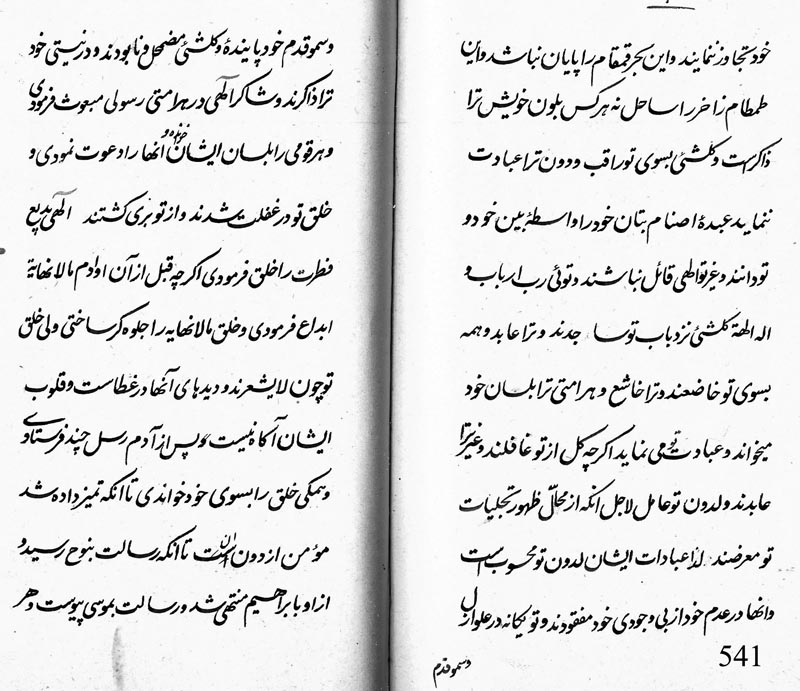 خود تجاوز نمایند و این بحر قمقام را پایان نباشد و این
طمطام زاخر را ساحل نه هر کس بلون خویش ترا
ذاکر است و کلشئ بسوی تو راقب و دون ترا عبادت
ننماید عبدهٔ اصنام بتان خود را واسطهٔ بین خود و
تو دانند و غیر تو الهی قائل نباشند و توئی رب ارباب و
اله الهة کلشئ نزد باب تو ساجدند و ترا عابد و همه
بسوی تو خاضعند و ترا خاشع و هر امتی ترا بلسان خود
میخواند و عبادت تو می نماید اگر چه کل از تو غافلند و غیر ترا
عابدند و لدون تو عامل لاجل انکه از محلّ ظهور تجلیات
تو معرضند لذا عبادات ایشان لدون تو محسوب است
و انها در عدم خود از بی وجودی خود مفقودند و تو یگانه در علو ازل
و سمو قدم
541
و سمو قدم خود پایندهٔ و کلشئ مضمحل و نابودند و در نیستی خود
ترا ذاکرند و شاکر الهی در هر امتی رسولی مبعوث فرمودی
و هر قومی را بلسان ایشان آنها را دعوت نمودی و
خلق تو در غفلت شدند و از تو بری گشتند الهی بدیع
فطرت را خلق فرمودی اگر چه قبل از آن اوادم مالانهایة
ابداع فرمودی و خلق مالانهایه را جلوه گر ساختی ولی خلق
تو چون لایشعرند و دیدهای آنها در غطاست و قلوب
ایشان آگاه نیست و پس از آدم رسل چند فرستادی
و همکی خلق را بسوی خود خواندی تا انکه تمیز داده شد
مؤمن از دون ان تا انکه رسالت بنوح رسید و
از او بابراهیم منتهی شد و رسالت بموسی پیوست و هر